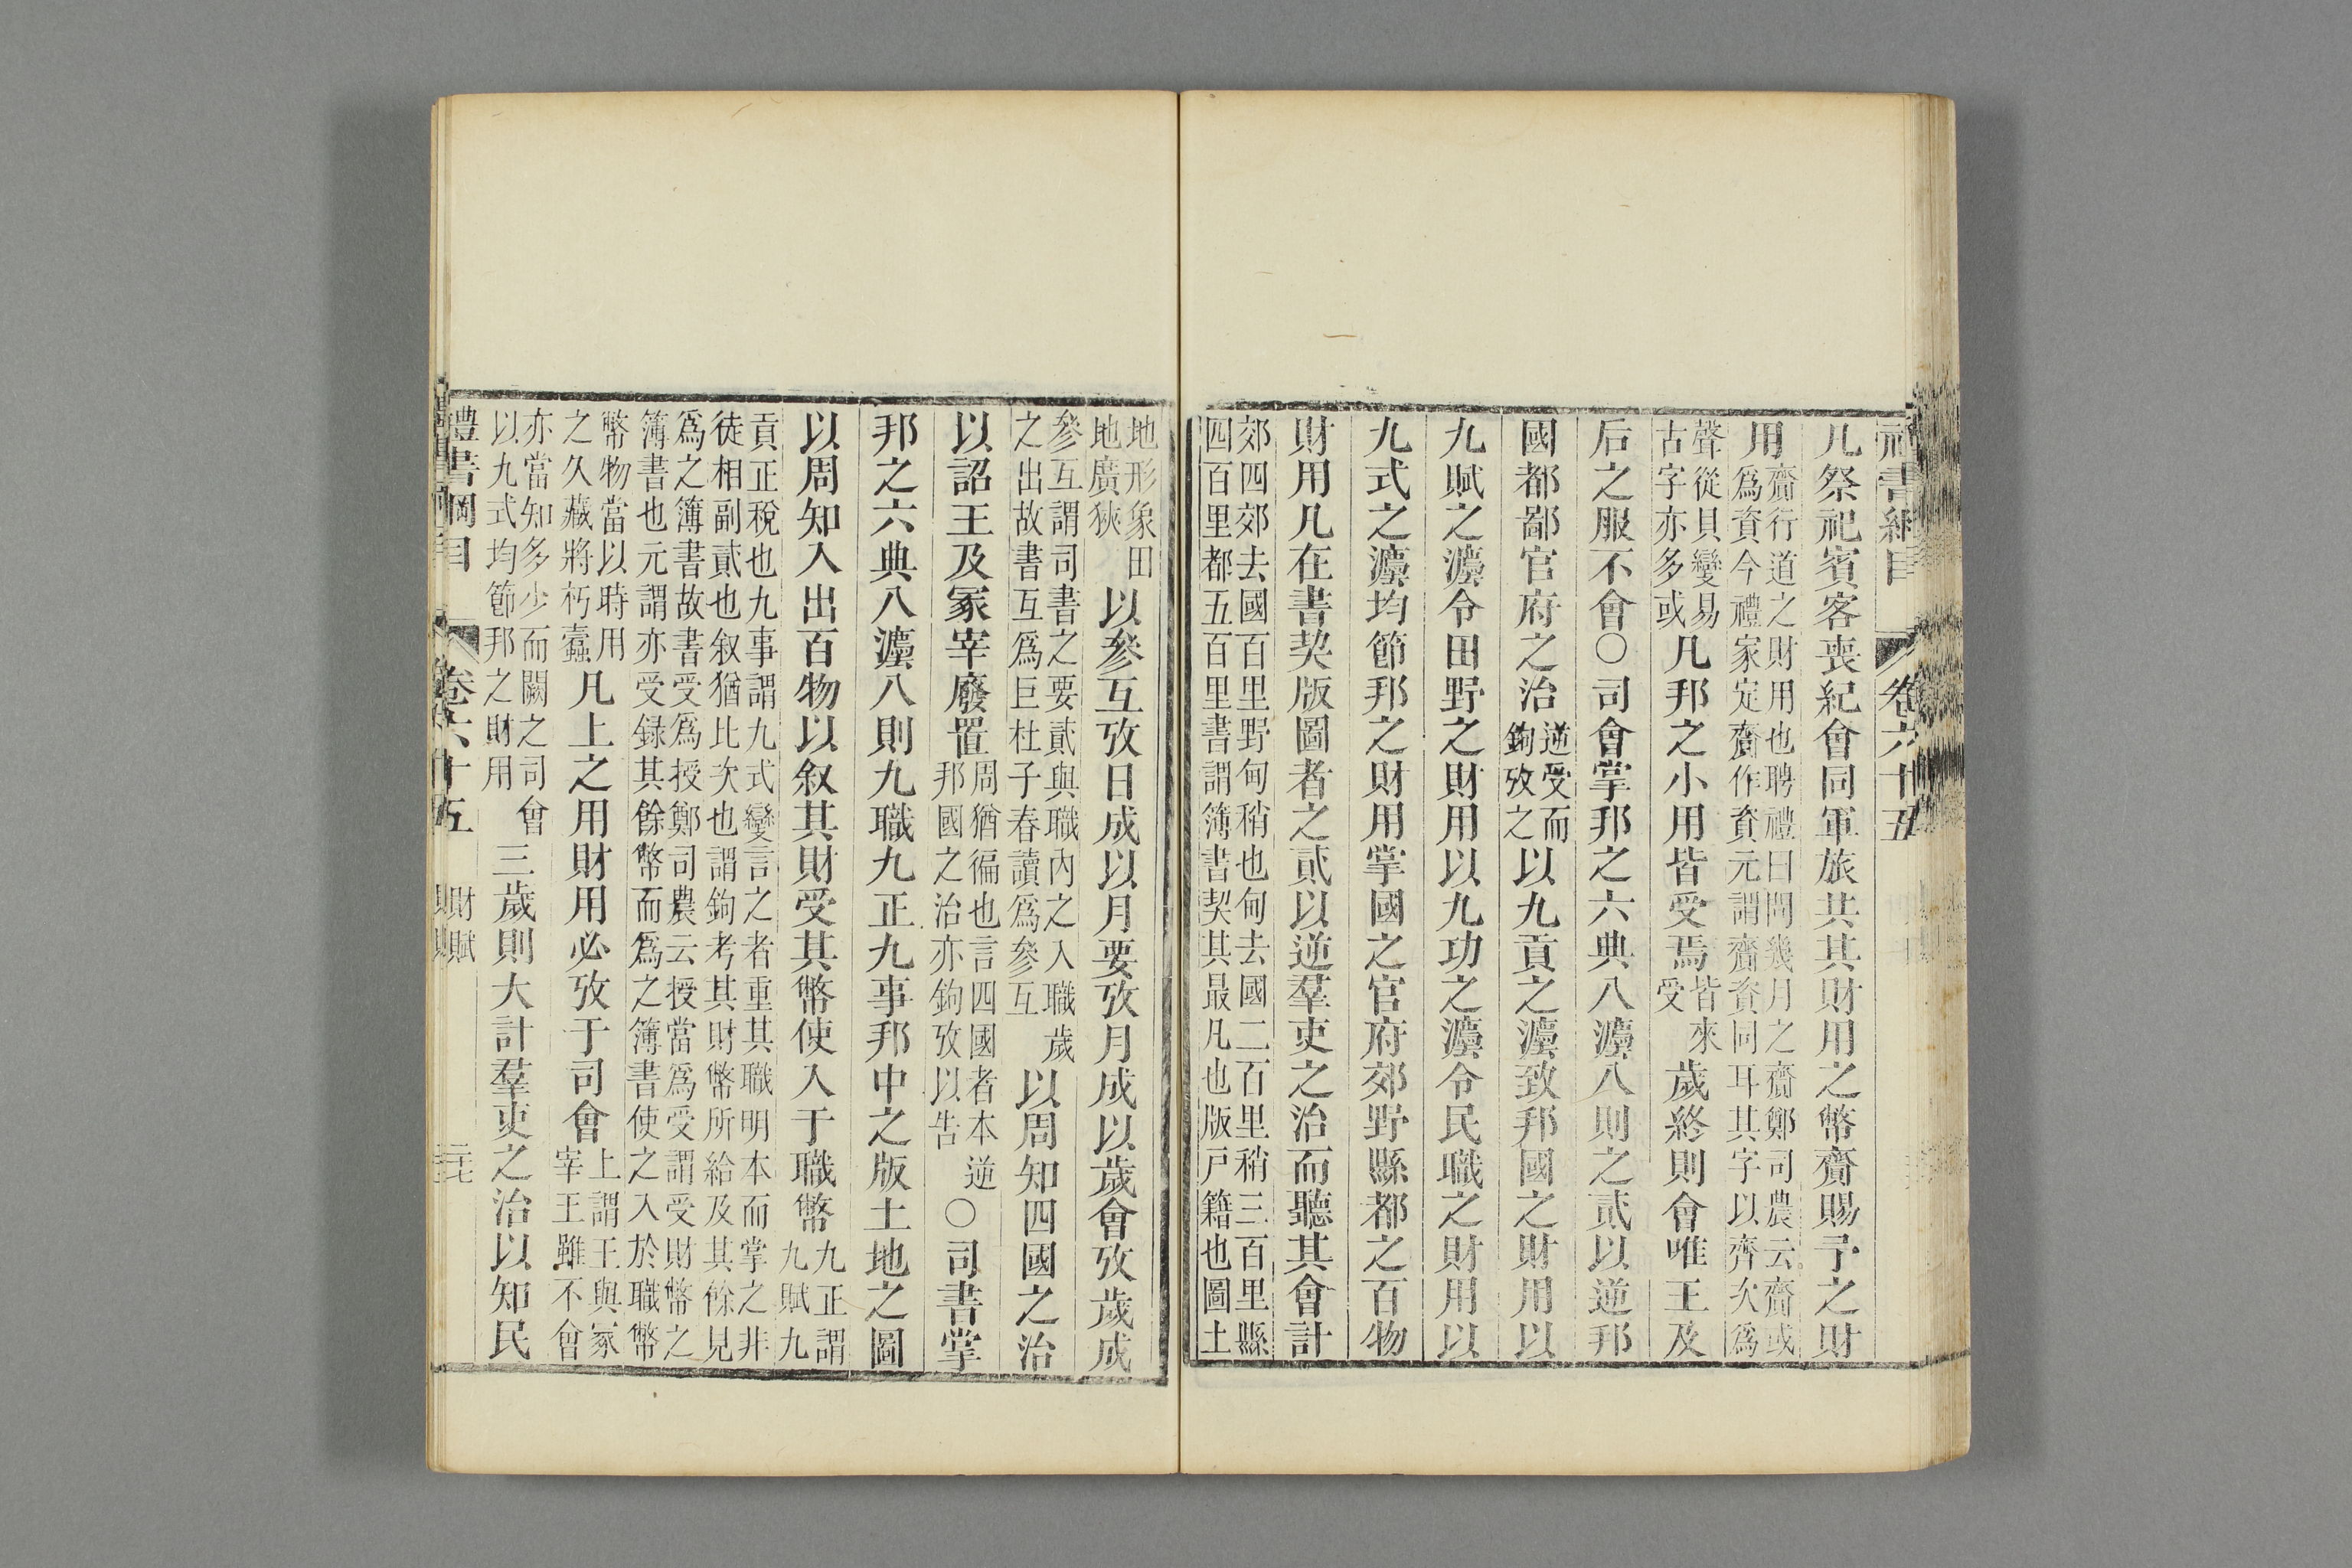 禮書綱目 卷六十五
凡祭祀賓客喪紀會同軍旅共其財用之幣齎賜予之財
用齎行道之財用也聘禮曰問幾月之齎鄭司農云齎或
爲資今禮家定齎作資元謂齎資同耳其字以齊次爲
聲從貝變易
古字亦多或凡邦之小用皆受焉皆來
受歲終則會唯王及
后之服不會○司會掌邦之六典八灋八則之貳以逆邦
國都鄙官府之治逆受而
鉤攷之以九貢之灋致邦國之財用以
九賦之灋令田野之財用以九功之灋令民職之財用以
九式之灋均節邦之財用掌國之官府郊野縣都之百物
財用凡在書契版圖者之貳以逆羣吏之治而聽其會計
郊四郊去國百里野甸稍也甸去國二百里稍三百里縣
四百里都五百里書謂簿書契其最凡也版戸籍也圖土
地形象田
地廣狹以參互攷日成以月要攷月成以歲會攷歲成
參互謂司書之要貳與職內之入職歲
之出故書互爲巨杜子春讀爲參互以周知四國之治
以詔王及冢宰廢置周猶徧也言四國者本逆
邦國之治亦鉤攷以告○司書掌
邦之六典八灋八則九職九正九事邦中之版土地之圖
以周知入出百物以叙其財受其幣使入于職幣九正謂
九賦九
貢正稅也九事謂九式變言之者重其職明本而掌之非
徒相副貳也叙猶比次也謂鉤考其財幣所給及其餘見
爲之簿書故書受爲授鄭司農云授當爲受謂受財幣之
簿書也元謂亦受録其餘幣而爲之簿書使之入於職幣
幣物當以時用
之久藏將朽蠹凡上之用財用必攷于司會上謂王與冢
宰王雖不會
亦當知多少而闕之司會
以九式均節邦之財用三歲則大計羣吏之治以知民
禮書綱目 卷六十五 財賦 三七